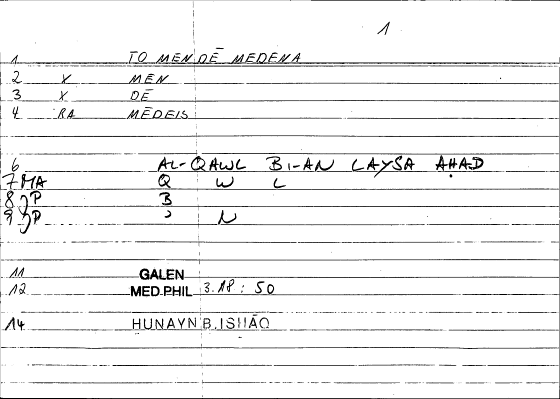 1
1 TO MEN DĒ MEDENA
2 X MEN
3 X DĒ
4 RA MĒDEIS
6 AL-QAWL BI-AN LAYSA AḤAD
7 MA Q W L
8 JP B
9 JP ʾ N
11 GALEN
12 MED.PHIL 3.18: 50
14 HUNAYN B. ISHĀQ